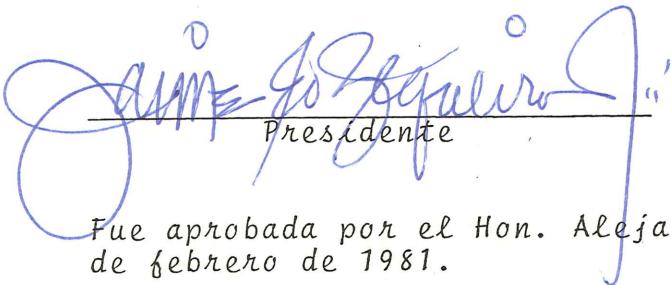 Jaime
Presidente
Fue aprobada por el Hon. Aleja
de febrero de 1981.